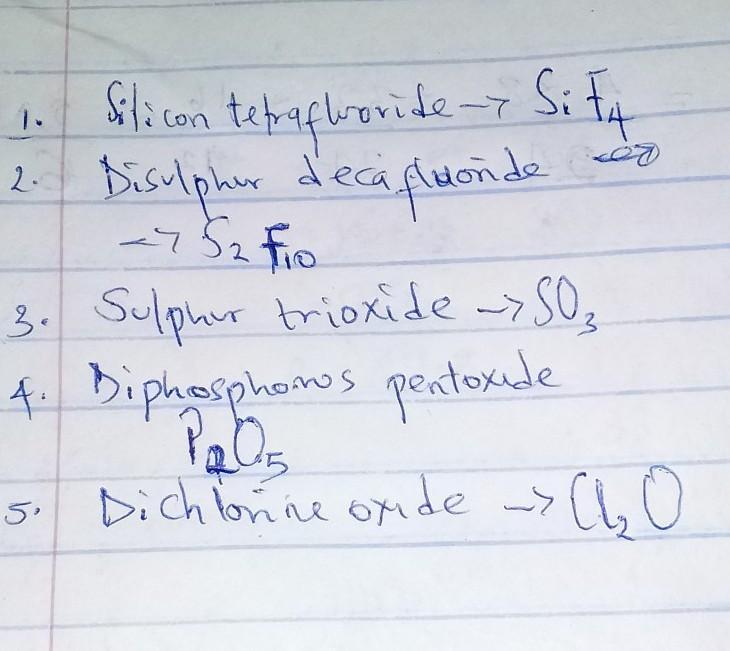 1. Silicon tetrafluoride → SiF₄
2. Disulphur decafluoride
→ S₂F₁₀
3. Sulphur trioxide → SO₃
4. Diphosphorus pentoxide
P₂O₅
5. Dichlorine oxide → Cl₂O